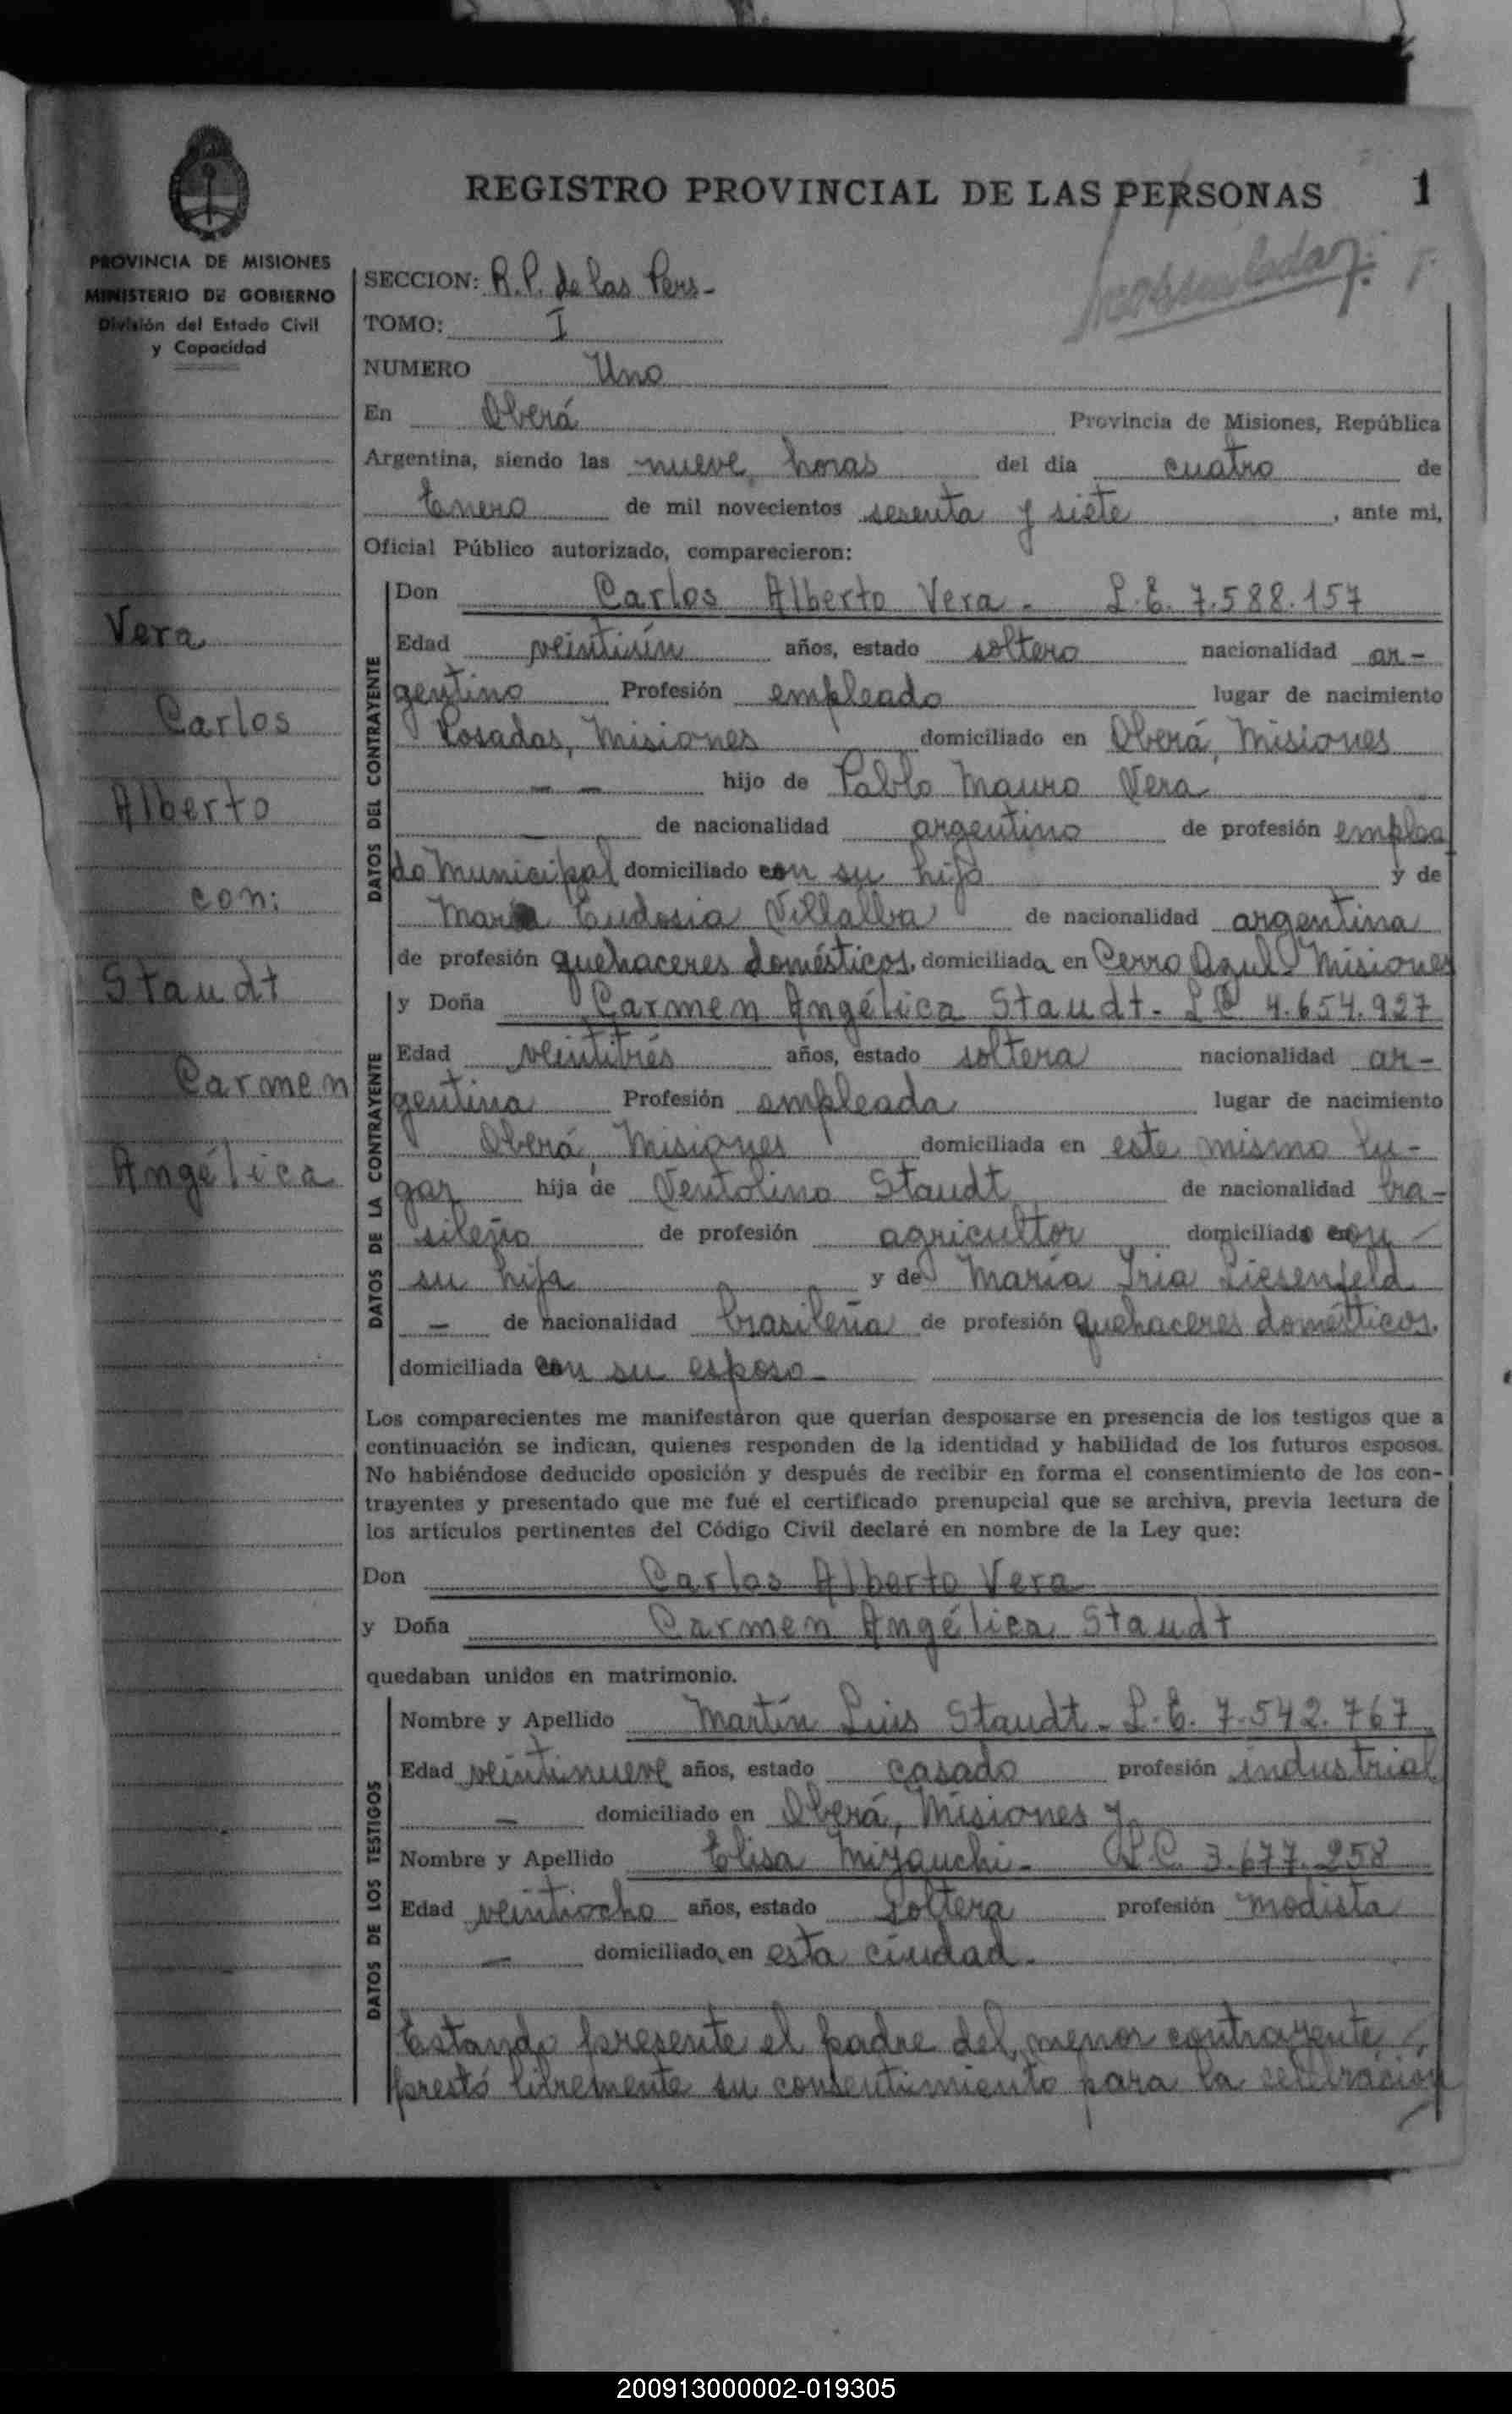 REGISTRO PROVINCIAL DE LAS PERSONAS 1
PROVINCIA DE MISIONES
MINISTERIO DE GOBIERNO
División del Estado Civil
y Capacidad
SECCION: R.P. de las Pers-
TOMO: I
NUMERO Uno
En Oberá Provincia de Misiones, República
Argentina, siendo las nueve horas del dia cuatro de
Enero de mil novecientos sesenta y siete, ante mi,
Oficial Público autorizado, comparecieron:
Vera
Carlos
Alberto
con:
Staudt
Carmen
Angélica
DATOS DEL CONTRAYENTE
Don Carlos Alberto Vera - L.E. 7.588.157
Edad veintiún años, estado soltero nacionalidad ar-
gentino Profesión empleado lugar de nacimiento
Posadas, Misiones domiciliado en Oberá, Misiones
- - hijo de Pablo Mauro Vera
- de nacionalidad argentino de profesión emplea
do Municipal domiciliado con su hijo y de
María Eudosia Villalba de nacionalidad argentina
de profesión quehaceres domésticos, domiciliada en Cerro Azul - Misiones
DATOS DE LA CONTRAYENTE
y Doña Carmen Angélica Staudt - L C 4.654.927
Edad veintitrés años, estado soltera nacionalidad ar-
gentina Profesión empleada lugar de nacimiento
Oberá, Misiones domiciliada en este mismo lu-
gar hija de Ventolino Staudt de nacionalidad bra-
sileño de profesión agricultor domiciliado con
su hija y de María Iria Liesenfeld
- de nacionalidad brasileña de profesión quehaceres domésticos,
domiciliada con su esposo -
Los comparecientes me manifestaron que querían desposarse en presencia de los testigos que a
continuación se indican, quienes responden de la identidad y habilidad de los futuros esposos.
No habiéndose deducido oposición y después de recibir en forma el consentimiento de los con-
trayentes y presentado que me fué el certificado prenupcial que se archiva, previa lectura de
los artículos pertinentes del Código Civil declaré en nombre de la Ley que:
Don Carlos Alberto Vera
y Doña Carmen Angélica Staudt
quedaban unidos en matrimonio.
DATOS DE LOS TESTIGOS
Nombre y Apellido Martín Luis Staudt - L.E. 7.542.767
Edad veintinueve años, estado casado profesión industrial
- domiciliado en Oberá, Misiones y
Nombre y Apellido Elisa Miyauchi - L.C. 3.677.258
Edad veintiocho años, estado soltera profesión modista
- domiciliado en esta ciudad.
Estando presente el padre del menor contrayente
prestó libremente su consentimiento para la celebración
200913000002-019305